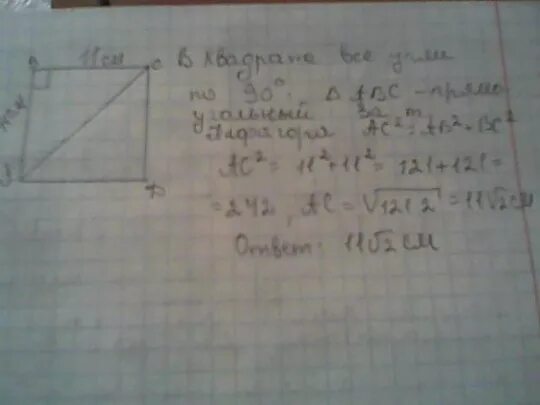 11 см
В квадрате все углы
по 90° Δ ABC - прямо
угольный За т
Пифагора AC² = AB² + BC²
AC² = 11² + 11² = 121 + 121 =
= 242, AC = √121 2 = 11√2 см
Ответ: 11√2 см
C
D